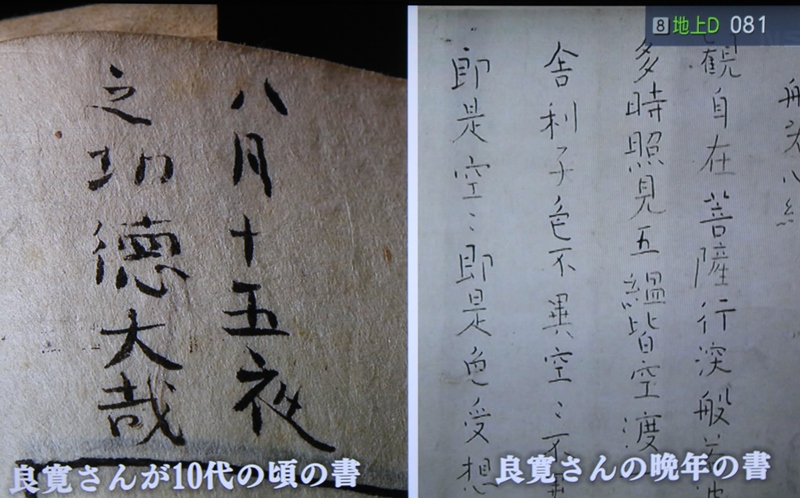 8 地上D 081
八月十五夜
之功德大哉
良寛さんが10代の頃の書
觀自在菩薩行深般若
多時照見五縕皆空渡
舎利子色不異空〻不
即是空〻即是色受想
良寛さんの晩年の書